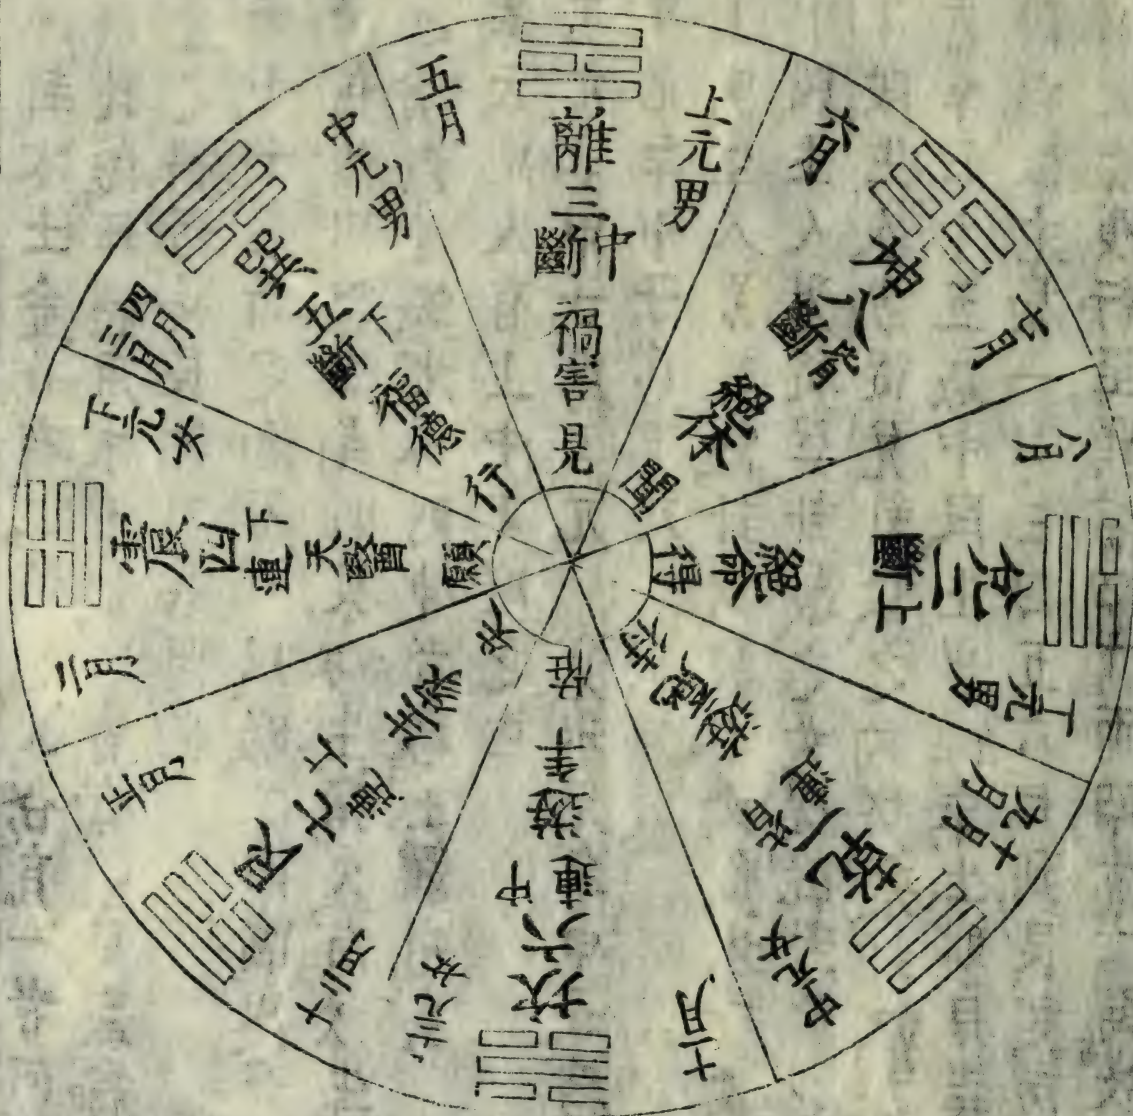 上元男
離三中斷
禍害
見
五月
六月
坤八皆斷
絕体
聞
七月
八月
兌二上斷
絕命
得
下元男
九月十月
乾一皆連
遊魂
中元女
十一月
坎六中連
遊年
上元女
十二月
艮七上連
生氣
失
正月
二月
震四下連
天醫
願
下元女
三月
四月
巽五下斷
福德
行
中元男